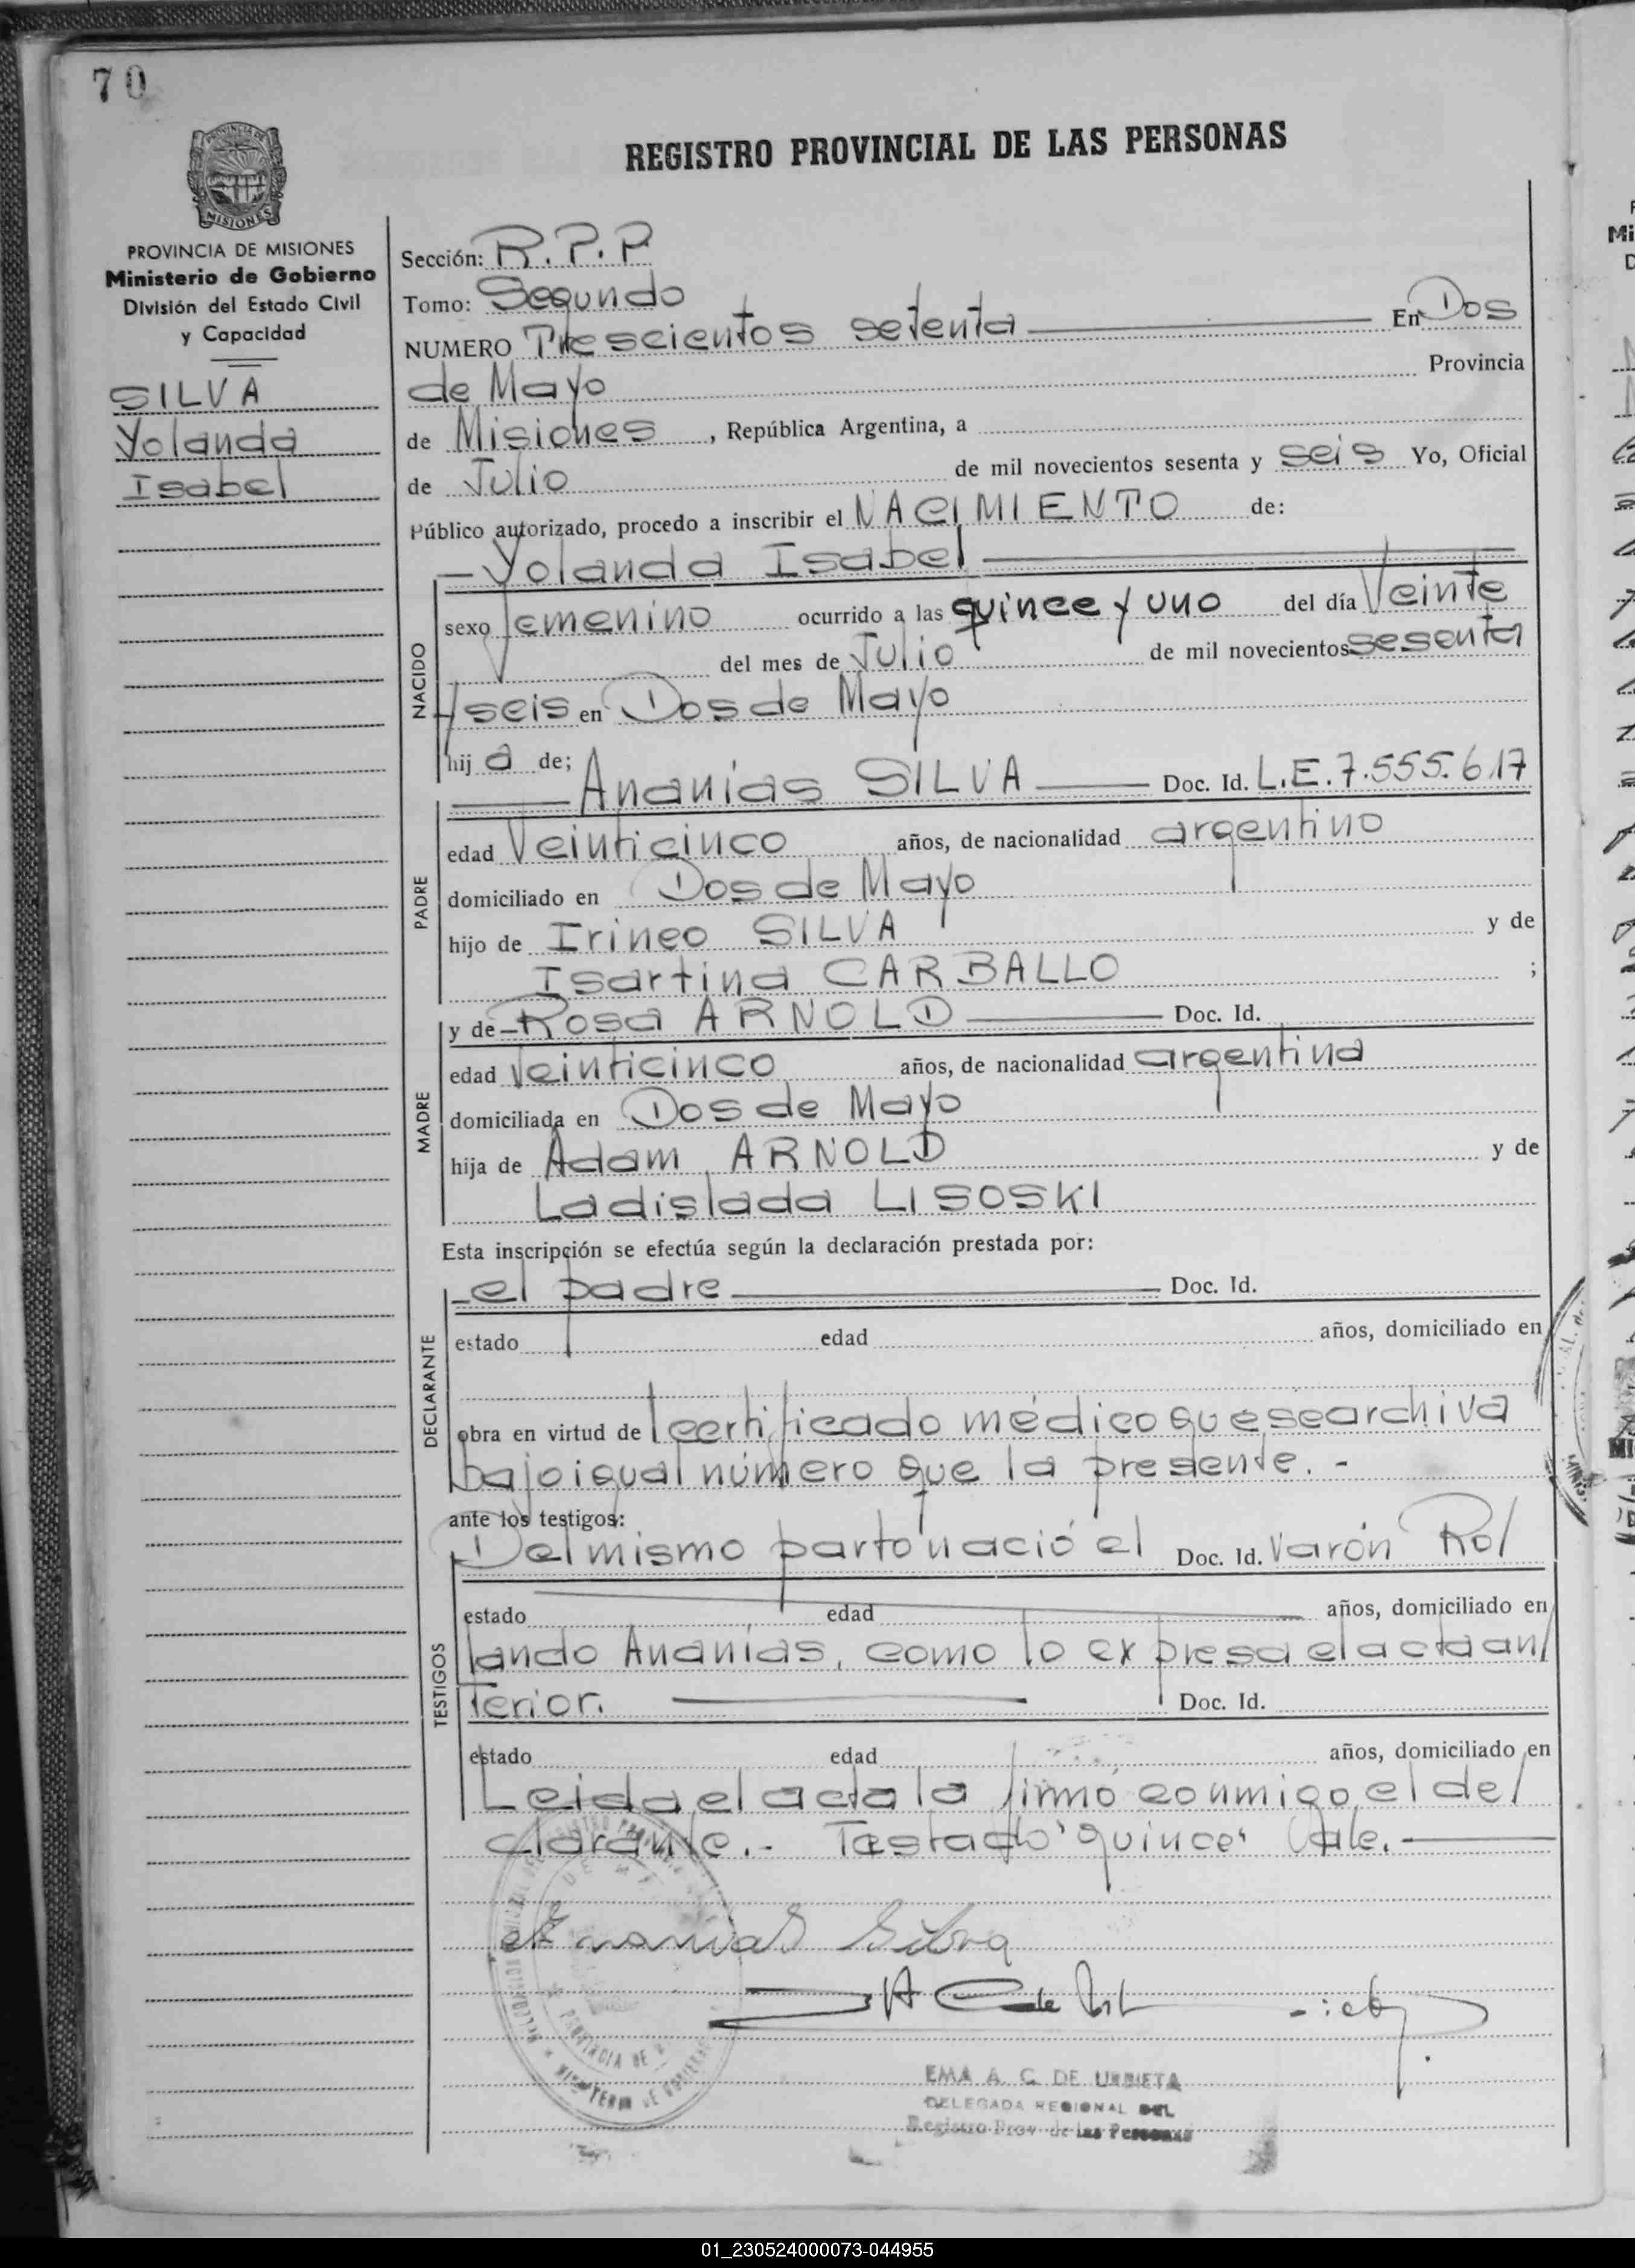 70
REGISTRO PROVINCIAL DE LAS PERSONAS
PROVINCIA DE MISIONES
Ministerio de Gobierno
División del Estado Civil
y Capacidad
SILVA
Yolanda
Isabel
Sección: R.P.P
Tomo: Segundo
NUMERO Trescientos setenta En Dos
de Mayo Provincia
de Misiones, República Argentina, a
de Julio de mil novecientos sesenta y seis Yo, Oficial
Público autorizado, procedo a inscribir el NACIMIENTO de:
Yolanda Isabel
NACIDO
sexo femenino ocurrido a las quince y uno del día Veinte
del mes de Julio de mil novecientos sesenta
y seis en Dos de Mayo
hij a de;
Ananias SILVA Doc. Id. L.E.7.555.617
PADRE
edad Veinticinco años, de nacionalidad argentino
domiciliado en Dos de Mayo
hijo de Irineo SILVA y de
Isartina CARBALLO ;
MADRE
y de Rosa ARNOLD Doc. Id.
edad Veinticinco años, de nacionalidad argentina
domiciliada en Dos de Mayo
hija de Adam ARNOLD y de
Ladislada LISOSKI
Esta inscripción se efectúa según la declaración prestada por:
DECLARANTE
el padre Doc. Id.
estado edad años, domiciliado en
obra en virtud de certificado médico que se archiva
bajo igual número que la presente.-
ante los testigos:
TESTIGOS
Del mismo parto nació el Doc. Id. Varón Ro/
estado edad años, domiciliado en
lando Ananías, como lo expresa el acta an/
terior. Doc. Id.
estado edad años, domiciliado en
Leida el acta la firmó conmigo el de/
clarante.- Testado "quince" Vale.
Ananias Silva
EMA A. C. DE URBIETA
DELEGADA REGIONAL DEL
Registro Prov. de las Personas
PROVINCIA DE
01_230524000073-044955